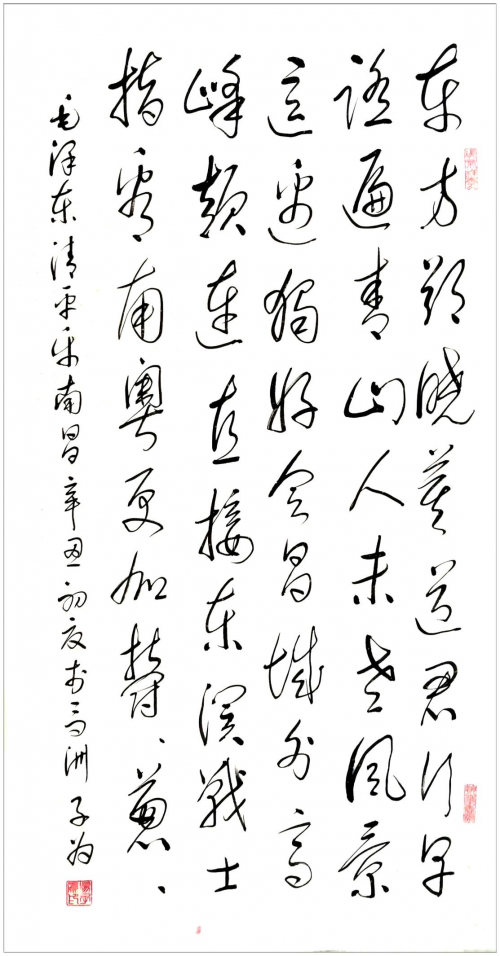 东方欲晓莫道君行早
踏遍青山人未老风景
这边独好会昌城外高
峰颠连直接东溟战士
指看南粤更加郁、葱、
毛泽东清平乐南昌辛丑初夏于高洲子为